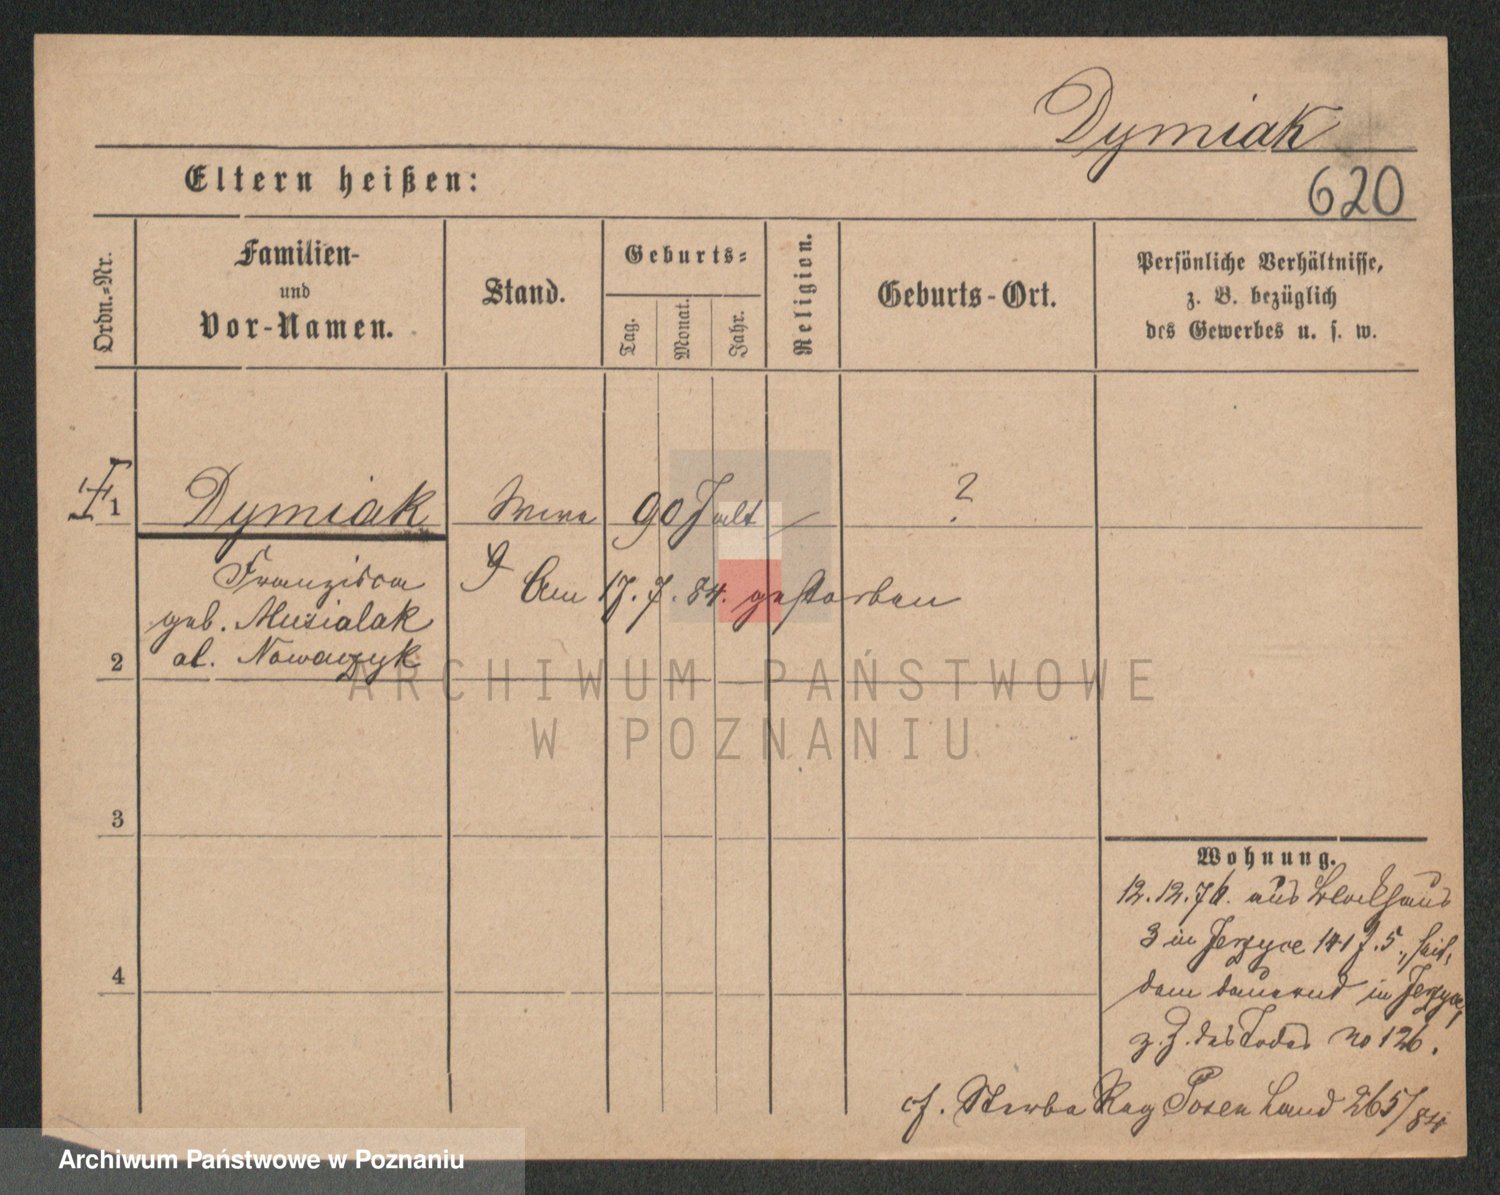 Dymiak
620
Eltern heißen:
Ordn.-Nr.
Familien-
und
Vor-Namen.
Stand.
Geburts-
Tag.
Monat.
Jahr.
Religion.
Geburts-Ort.
Persönliche Verhältnisse,
z. B. bezüglich
des Gewerbes u. s. w.
1 Dymiak 90 J alt ?
Franzisca
geb. Musialak
al. Nowaczyk
Am 17. 7. 84. gestorben
2
3
4
Wohnung.
12.12.76. aus Blockhaus
3 in Jerzyce 141 J. 5., seit,
dem dauernd in Jerzyce,
z. Z. des Todes no 126.
cf. Sterbe Reg Posen Land 265/84
ARCHIWUM PAŃSTWOWE
W POZNANIU
Archiwum Państwowe w Poznaniu